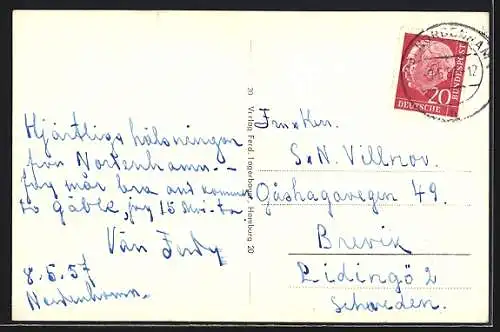 Hjärtliga hälsningar
från Nordenhamn. —
Jag mår bra och kommer
to Gävle, jag 15 
Vän Ferdy
8.5.57
Nordenhamn.
20 Verlag Ferd. Lagerbauer, Hamburg 20
NORDENHAM
12
20
DEUTSCHE BUNDESPOST
Fru
S. N. Villnov.
Gåshagavegen 49.
Brevik
Lidingö 2
Schweden.